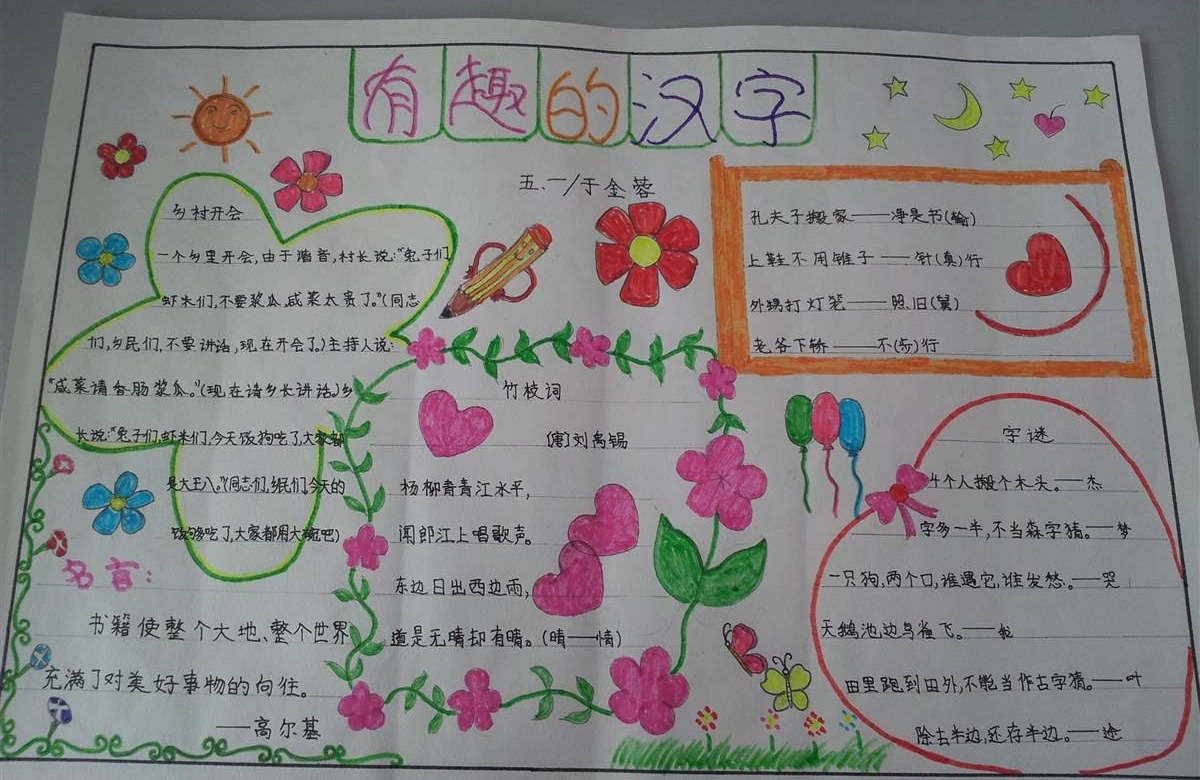 有趣的汉字
五、一/于金蓉
乡村开会
一个乡里开会,由于谐音,村长说:“兔子们
虾米们,不要浆瓜,咸菜太贵了。”(同志
们,乡民们,不要讲话,现在开会了。)主持人说:
“咸菜请香肠浆瓜。”(现在请乡长讲话。)乡
长说:“兔子们,虾米们,今天饭狗吃了,大家都
是大王八。”(同志们,乡民们,今天的
饭够吃了,大家都用大碗吧)
名言:
书籍使整个大地、整个世界
充满了对美好事物的向往。
——高尔基
竹枝词
[唐]刘禹锡
杨柳青青江水平,
闻郎江上唱歌声。
东边日出西边雨,
道是无晴却有晴。(晴——情)
孔夫子搬家——净是书(输)
上鞋不用锥子——针(真)行
外甥打灯笼——照旧(舅)
老爷下轿——不(步)行
字谜
4个人搬个木头。——杰
字多一半,不当森字猜。——梦
一只狗,两个口,谁遇它,谁发愁。——哭
天鹅池边鸟雀飞。——
田里跑到田外,不能当作古字猜。——叶
除去半边,还存半边。——途